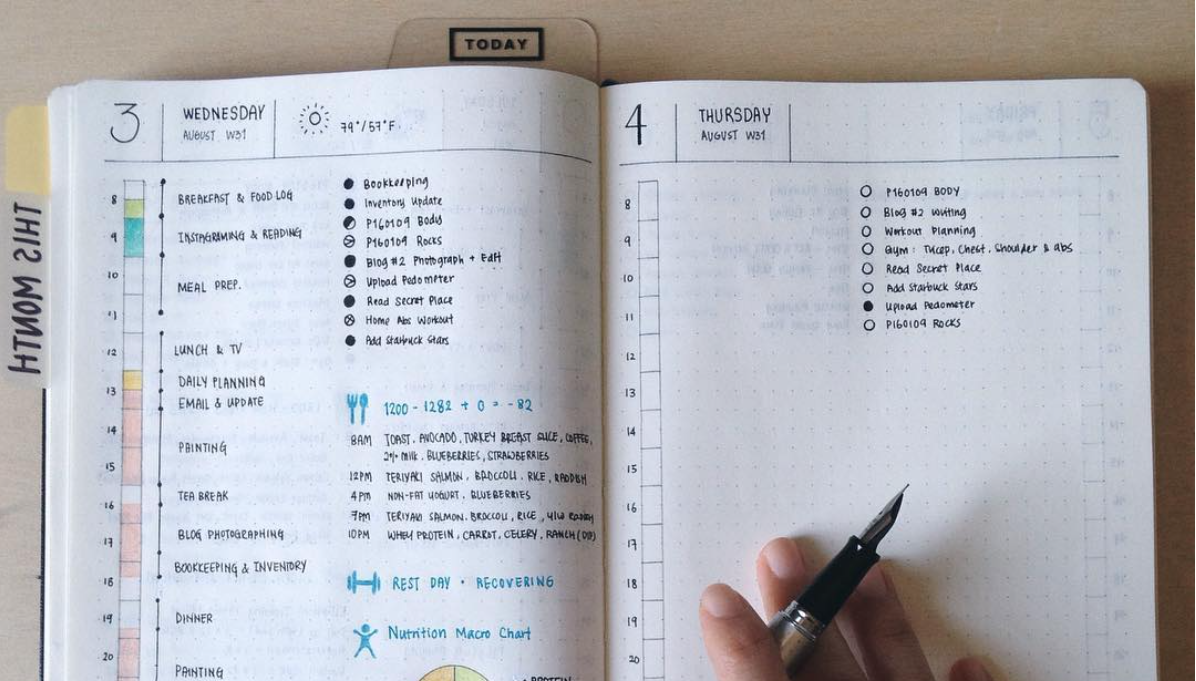 TODAY
THIS MONTH
3
WEDNESDAY
AUGUST W31
79°/57°F
8
9
10
11
12
13
14
15
16
17
18
19
20
BREAKFAST & FOOD LOG
INSTAGRAMING & READING
MEAL PREP.
LUNCH & TV
DAILY PLANNING
EMAIL & UPDATE
PAINTING
TEA BREAK
BLOG PHOTOGRAPHING
BOOKKEEPING & INVENTORY
DINNER
PAINTING
Bookkeeping
Inventory Update
P160109 Body
P160109 Rocks
Blog #2 Photograph + Edit
Upload Pedometer
Read Secret Place
Home Abs Workout
Add Starbuck Stars
1200 - 1282 + 0 = -82
8AM TOAST, AVOCADO, TURKEY BREAST SLICE, COFFEE,
2% milk, BLUEBERRIES, STRAWBERRIES
12PM TERIYAKI SALMON, BROCCOLI, RICE, RADDISH
4PM NON-FAT YOGURT, BLUEBERRIES
7PM TERIYAKI SALMON, BROCCOLI, RICE,
10PM WHEY PROTEIN, CARROT, CELERY, RANCH
REST DAY · RECOVERING
Nutrition Macro Chart
PROTEIN
4
THURSDAY
AUGUST W31
8
9
10
11
12
13
14
15
16
17
18
19
20
P160109 BODY
Blog #2 Writing
Workout Planning
Gym: Tricep, Chest, Shoulder & abs
Read Secret Place
Add Starbuck Stars
Upload Pedometer
P160109 ROCKS